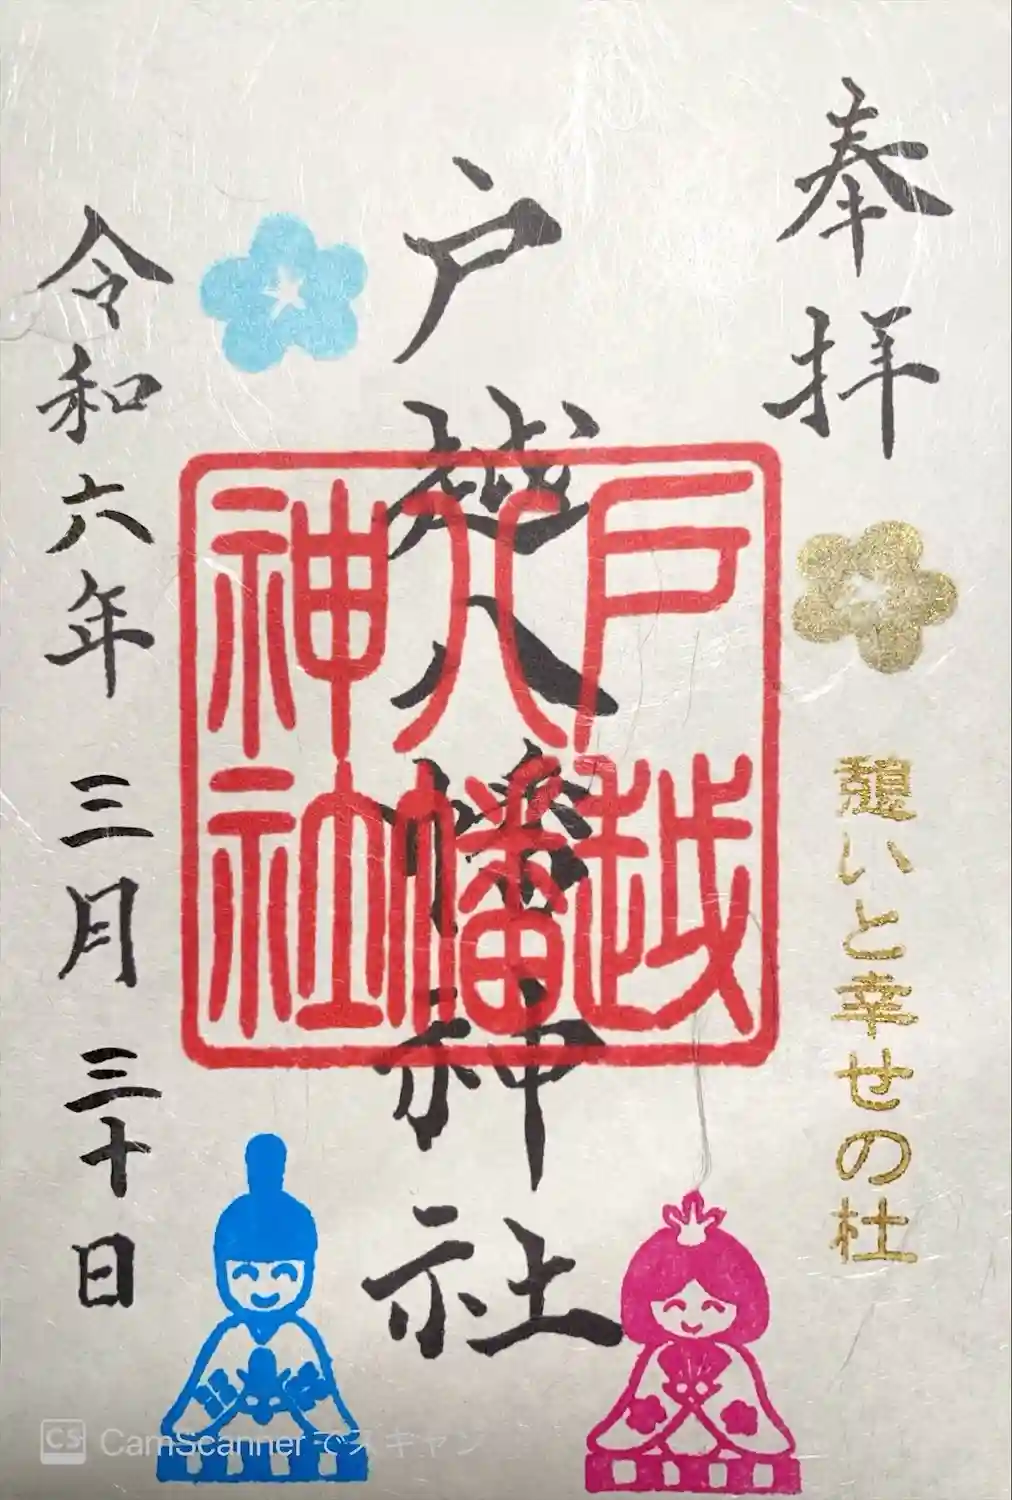 奉拝
憩いと幸せの杜
戸越八幡神社
戸越
八幡
神社
令和六年 三月 三十日
CS CamScannerでスキャン